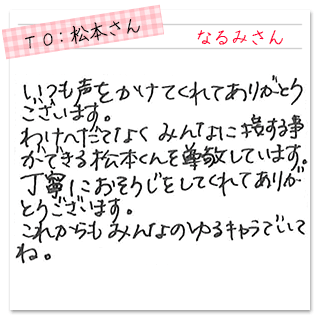 TO:松本さん
なるみさん
いつも声をかけてくれてありがとう
ございます。
わけへだてなく みんなに接する事
ができる松本くんを尊敬しています。
丁寧におそうじをしてくれてありが
とうございます。
これからもみんなのゆるキャラでいて
ね。